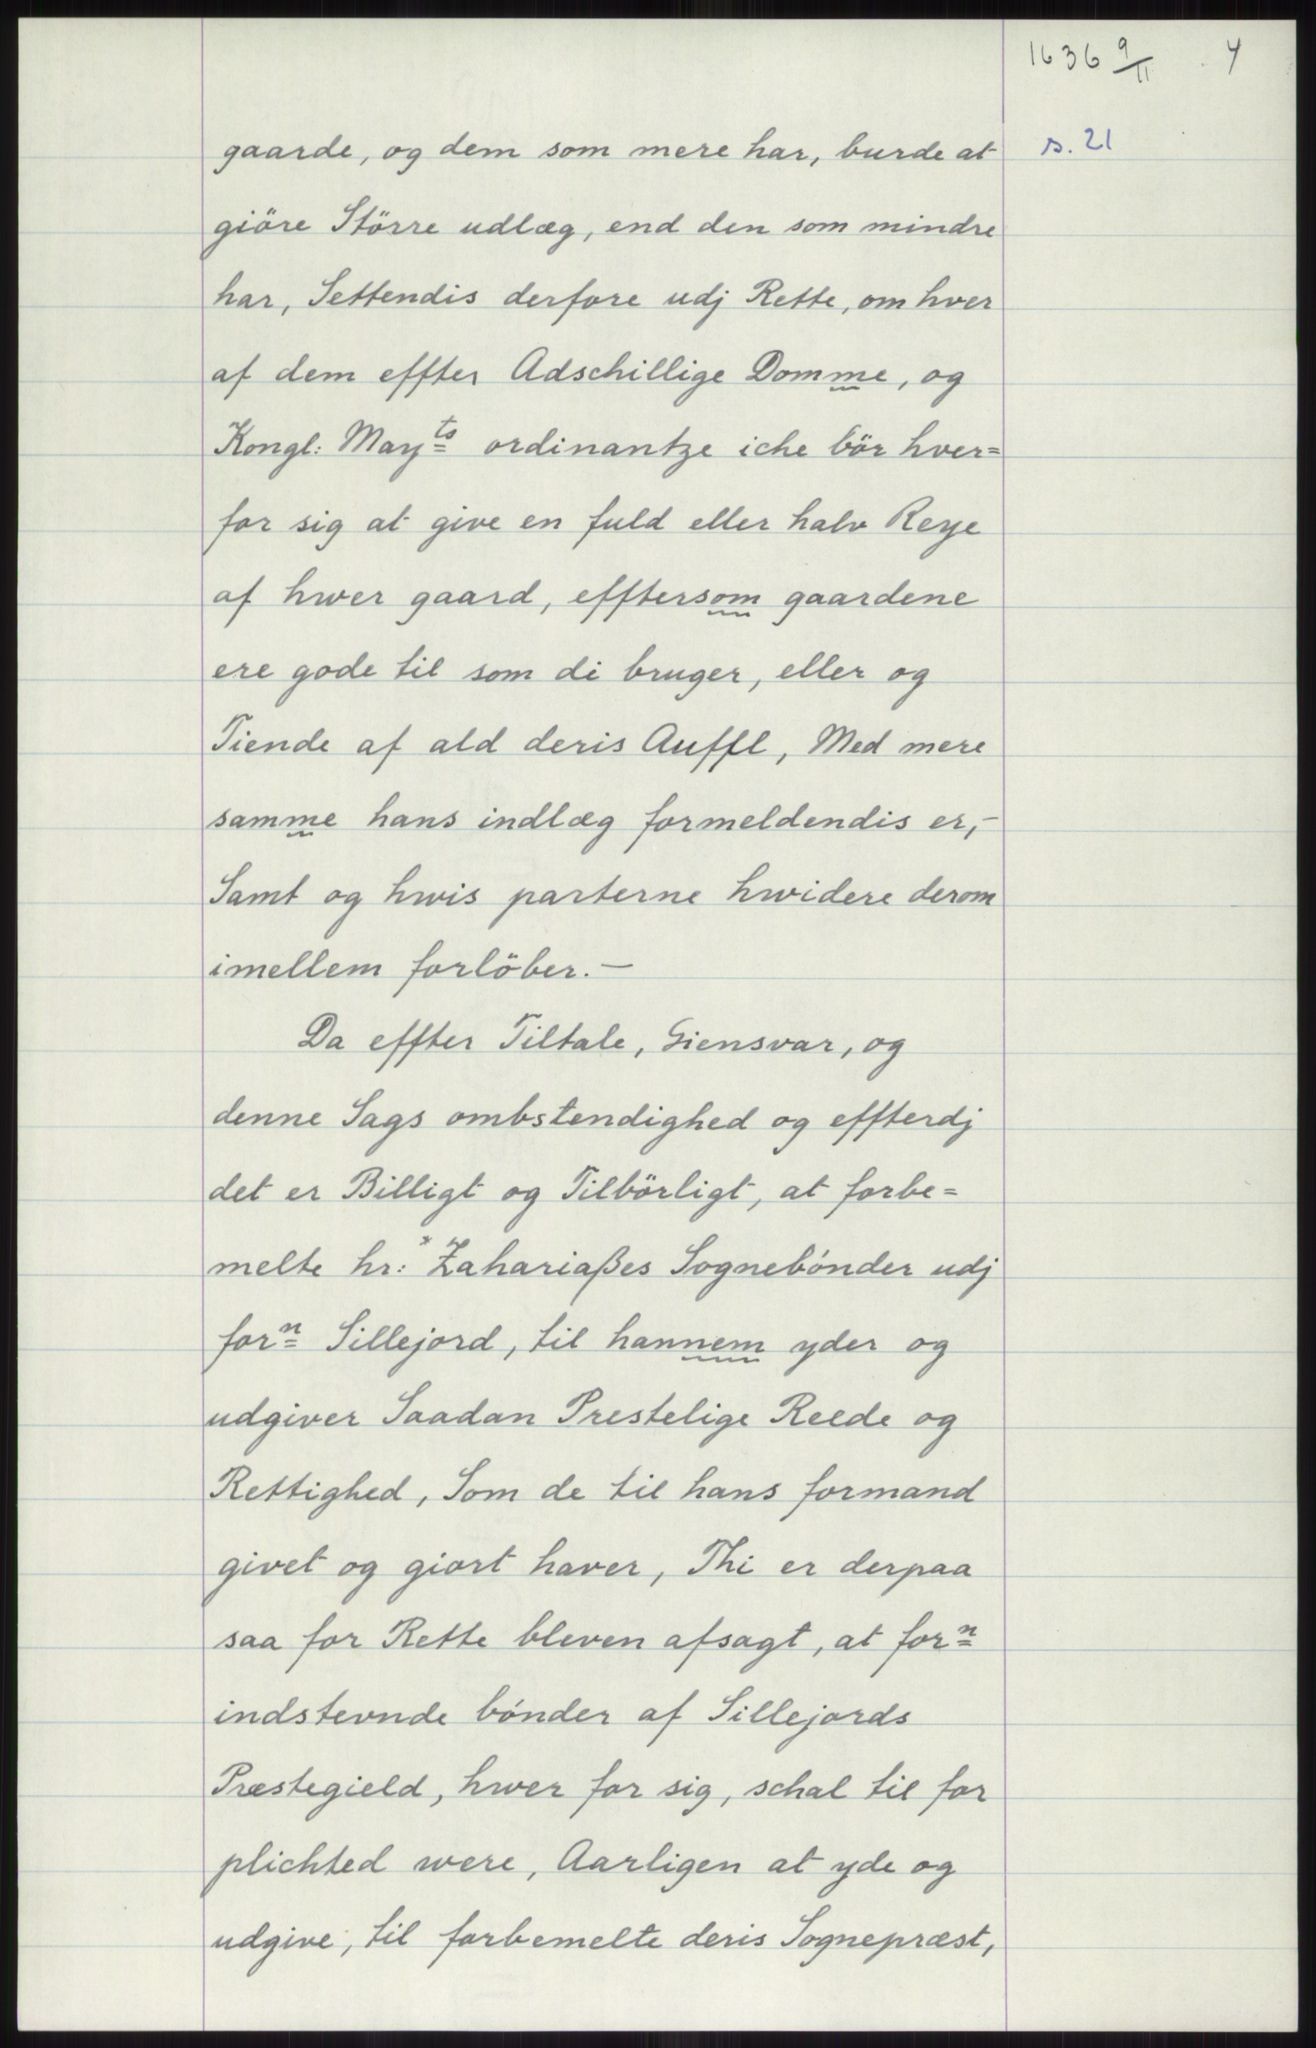 1636 9/11 4
s. 21
gaarde, og dem som mere har, burde at
giöre Större udlæg, end den som mindre
har, Settendis derfore udj Rette, om hver
af dem effter Adschillige Domme, og
Kongl: Mayts ordinantze iche bör hver=
for sig at give en fuld eller halv Reye
af hwer gaard, efftersom gaardene
ere gode til som di bruger, eller og
Tiende af ald deris Auffl, Med mere
samme hans indlæg formeldendis er,-
Samt og hwis parterne hwidere derom
imellem forlöber.-
Da effter Tiltale, Giensvar, og
denne Sags ombstendighed og effterdj
det er Billigt og Tilbörligt, at forbe=
melte hr: *Zahariaßes Sognebónder udj
forn Sillejord, til hannem yder og
udgiver Saadan Prestelige Reede og
Rettighed, Som de til hans formand
givet og giort haver, Thi er derpaa
saa for Rette bleven afsagt, at forn
indstevnde bónder af Sillejords
Præstegield, hwer for sig, schal til for
plichted were, Aarligen at yde og
udgive, til forbemelte deris Sognepræst,